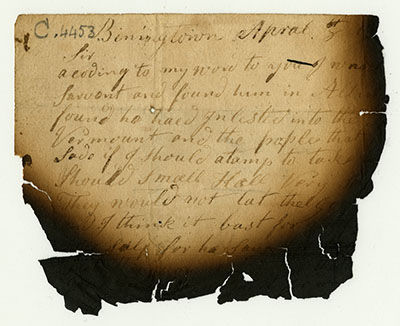 C.4453 Beningtown Apral
Sir
acoding to my word to you I was
Sarvant and found him in
found he haed Inlested into the
Vermount and the people that
Sade if I should atamp to take
Should Smell Hell
They would not lat the
I think it bast for
for he